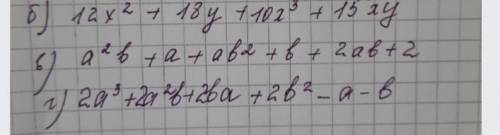 б) 12x² + 18y + 10x³ + 15xy
в) a²b + a + ab² + b + 2ab + 2
г) 2a³ + 2a²b + 2ba + 2b² - a - b